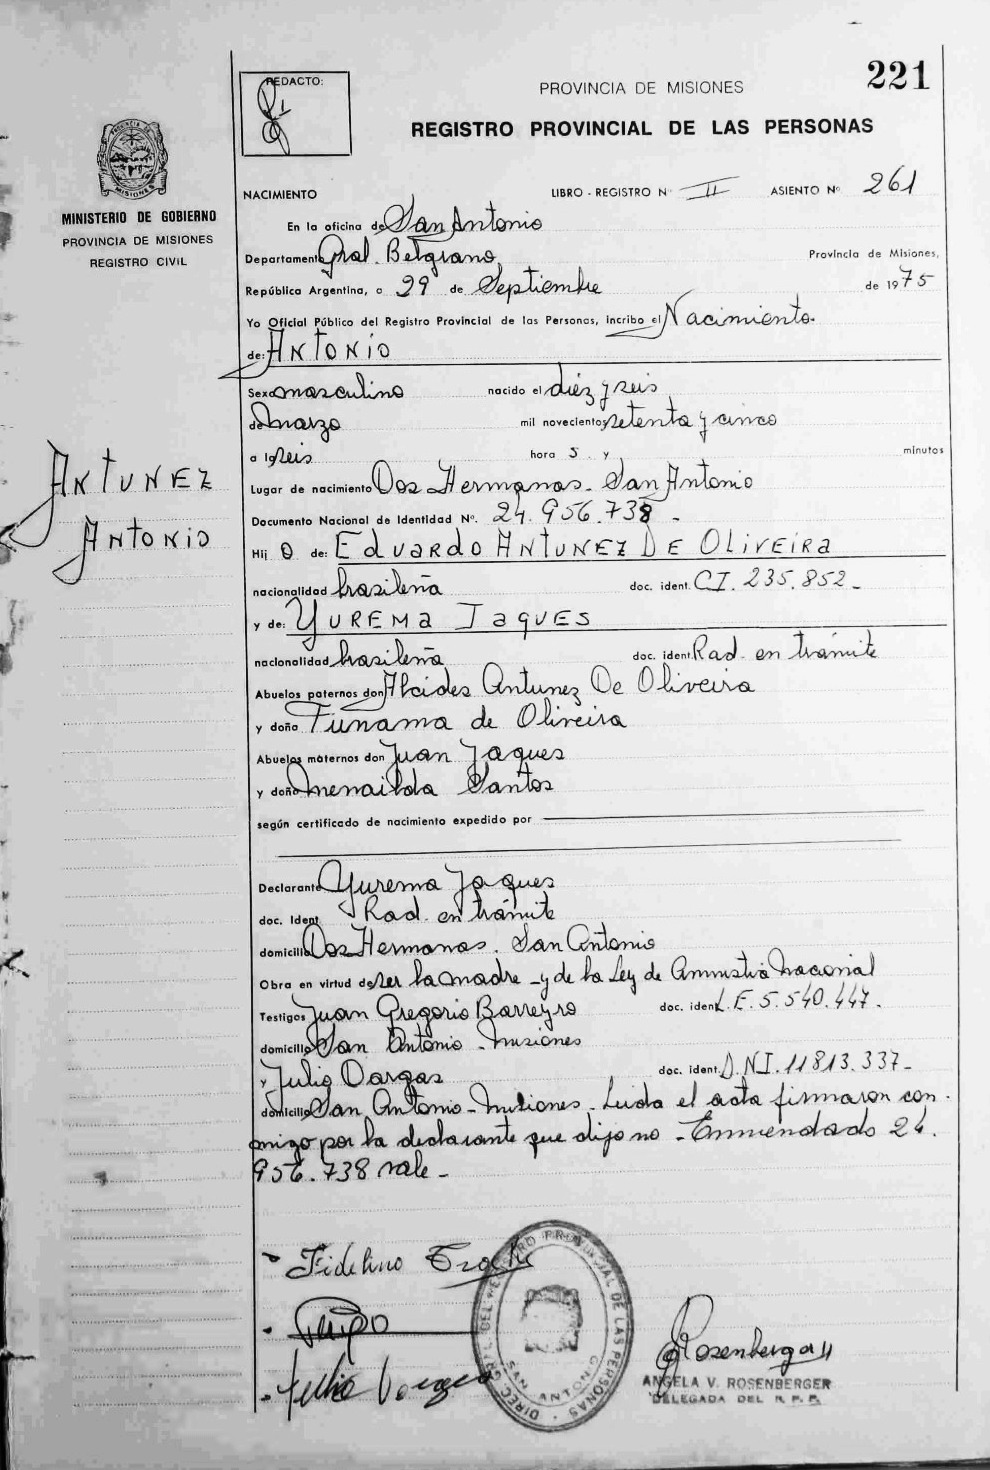 221
REDACTO:
PROVINCIA DE MISIONES
REGISTRO PROVINCIAL DE LAS PERSONAS
PROVINCIA DE MISIONES
MINISTERIO DE GOBIERNO
PROVINCIA DE MISIONES
REGISTRO CIVIL
NACIMIENTO LIBRO - REGISTRO Nº II ASIENTO Nº 261
En la oficina de San Antonio
Departamento Gral. Belgrano Provincia de Misiones,
República Argentina, a 29 de Septiembre de 1975
Yo Oficial Público del Registro Provincial de las Personas, incribo el Nacimiento
de: ANTONIO
Sexo masculino nacido el diéz y seis
de marzo mil novecientos setenta y cinco
a las seis hora s y minutos
Lugar de nacimiento Dos Hermanas. San Antonio
Documento Nacional de Identidad Nº. 24.956.738 -
Hij o de: EDUARDO ANTUNEZ DE OLIVEIRA
nacionalidad brasileña doc. ident. CI. 235.852 -
y de: YUREMA JAQUES
nacionalidad brasileña doc. ident. Rad. en trámite
Abuelos paternos don Alcides Antunez De Oliveira
y doña Funama de Oliveira
Abuelos maternos don Juan Jaques
y doña Menailda Santos
según certificado de nacimiento expedido por
ANTUNEZ
ANTONIO
Declarante Yurema Jaques
doc. Ident. Rad. en trámite
domicilio Dos Hermanas. San Antonio
Obra en virtud de ser la madre - y de la Ley de Amnistia Nacional
Testigos Juan Gregorio Barreyro doc. ident. L.E. 5.540.447.
domicilio San Antonio - Misiones
y Julio Vargas doc. ident. D.NI. 11813.337 -
domicilio San Antonio - Misiones. Leida el acta firmaron con-
migo por la declarante que dijo no - Enmendado 24.
956.738 vale -
Fidelino
Julio Vargas
DIREC. GRAL. DEL REGISTRO PROVINCIAL DE LAS PERSONAS
SAN ANTONIO
Rosenberger
ANGELA V. ROSENBERGER
DELEGADA DEL R. P. P.